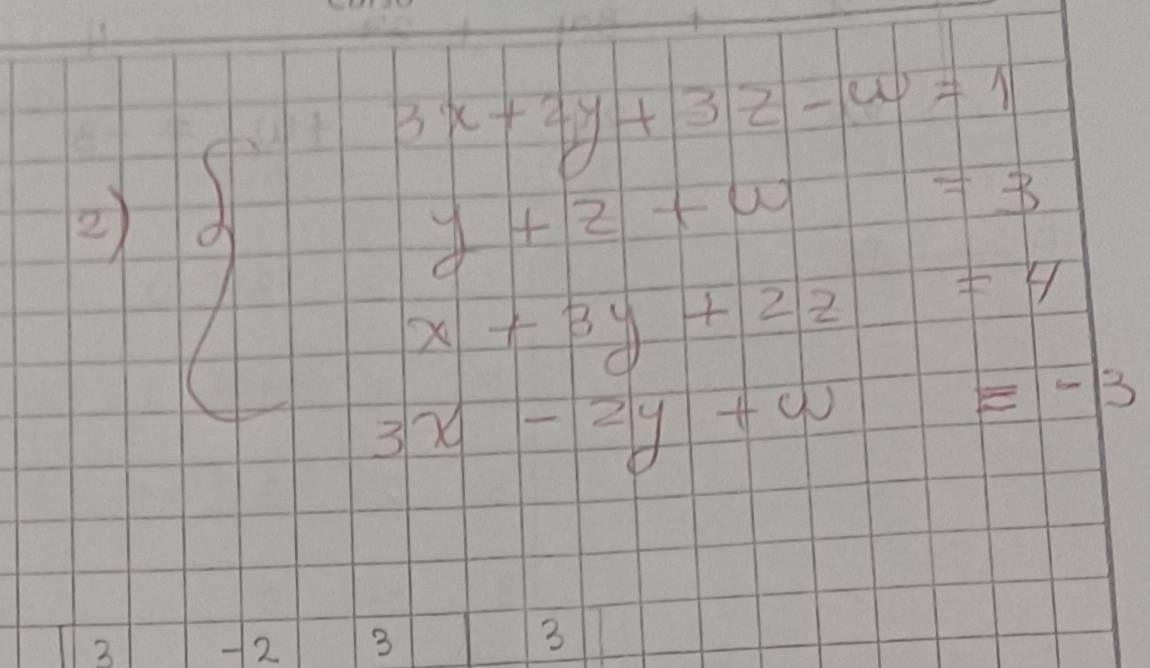 3x + 2y + 3z - w = 1
2) { y + z + w = 3
x + 3y + 2z = 4
3x - 2y + w = -3
3 -2 3 3